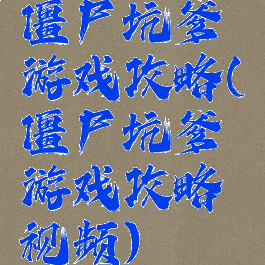 僵尸坑爹
游戏攻略(
僵尸坑爹
游戏攻略
视频)